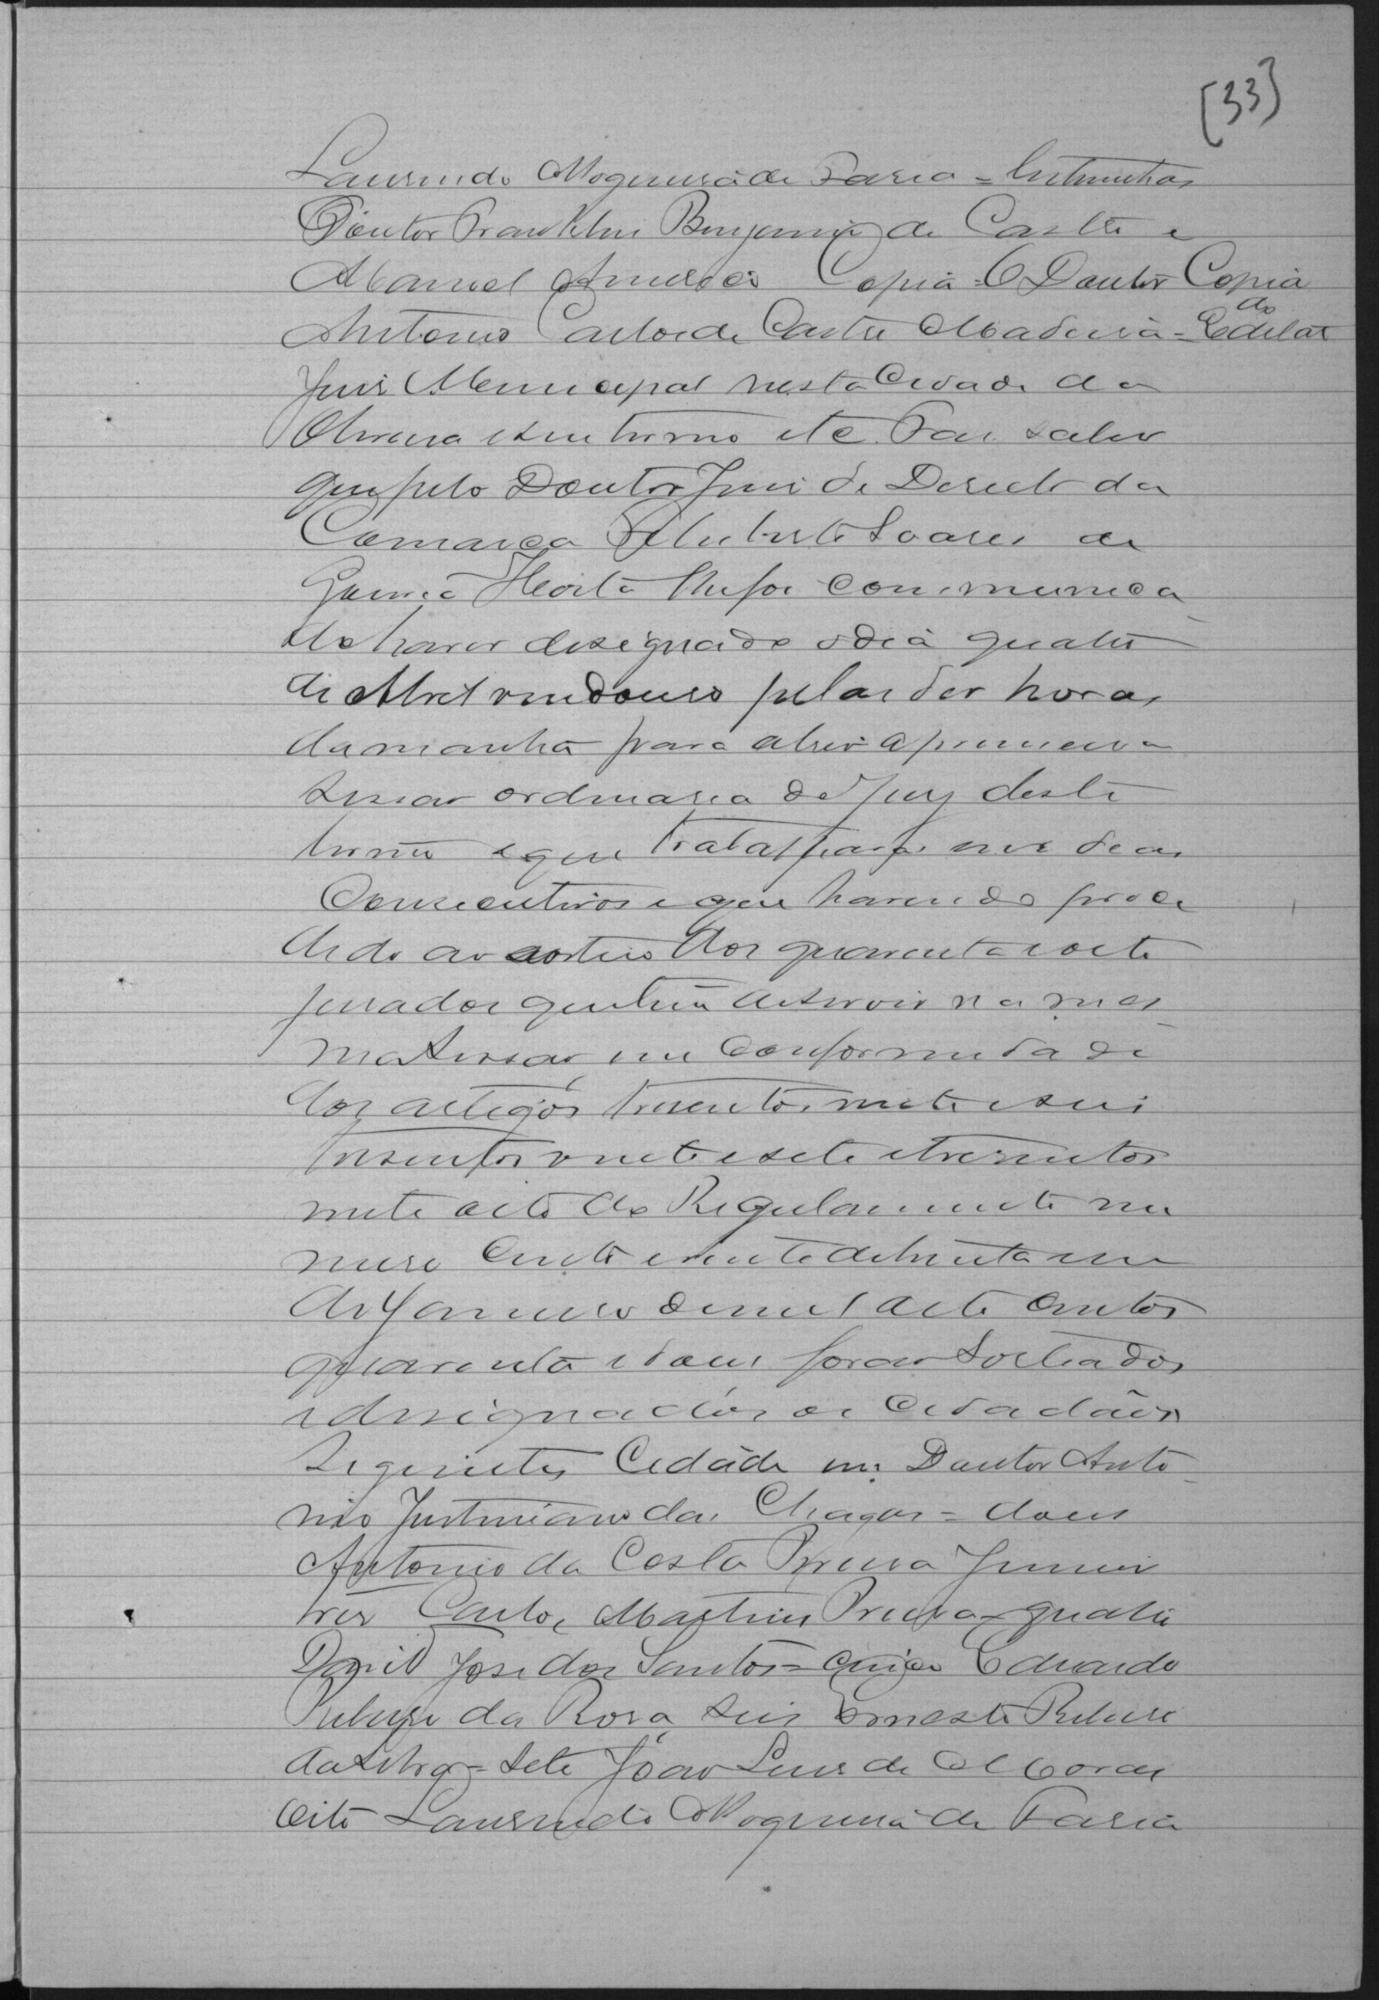 [33]
Laurindo Nogueira de Faria = testemunhas
Doutor Franklin Benjamin de Castro e
Manoel Americo Copia = O Doutor Copia
do
Antonio Carlos de Castro Madeira = Edital
Juis Municipal nesta Cidade da
Oliveira e seu termo etc. Faz saber
que pelo Doutor Juis de Dereito da
Comarca Feliberto Soares de
Gouvea Horta lhe foi communica
do haver designado o dia quatro
de Abril vindouro pelas dez horas
da manhã para abrir a primeira
sessão ordinaria do Jury deste
termo e que trabalhará nos dias
Consecutivos e que havendo proce
dido ao sorteio dos quarenta e oito
jurados que tem de servir na mes
ma sessão, em Conformidade
dos artigos tresentos vinte e seis
tresentos vinte e sete e tresentos
vinte oito do Regulamento nu
mero Cento e vinte de trinta e um
de Janeiro de mil oito centos
quarenta e dous forão Sorteados
e designados os Cidadãos
seguintes Cidade um Doutor Anto
nio Justiniano das Chagas = dous
Antonio da Costa Pereira Junior
tres Carlos Martins Pereira = quatro
David Jose dos Santos = cinco Eduardo
Ribeiro da Rosa, seis Ernesto Ribeiro
da Silva = sete João Luis de Moraes
Oito Laurindo Nogueira de Faria